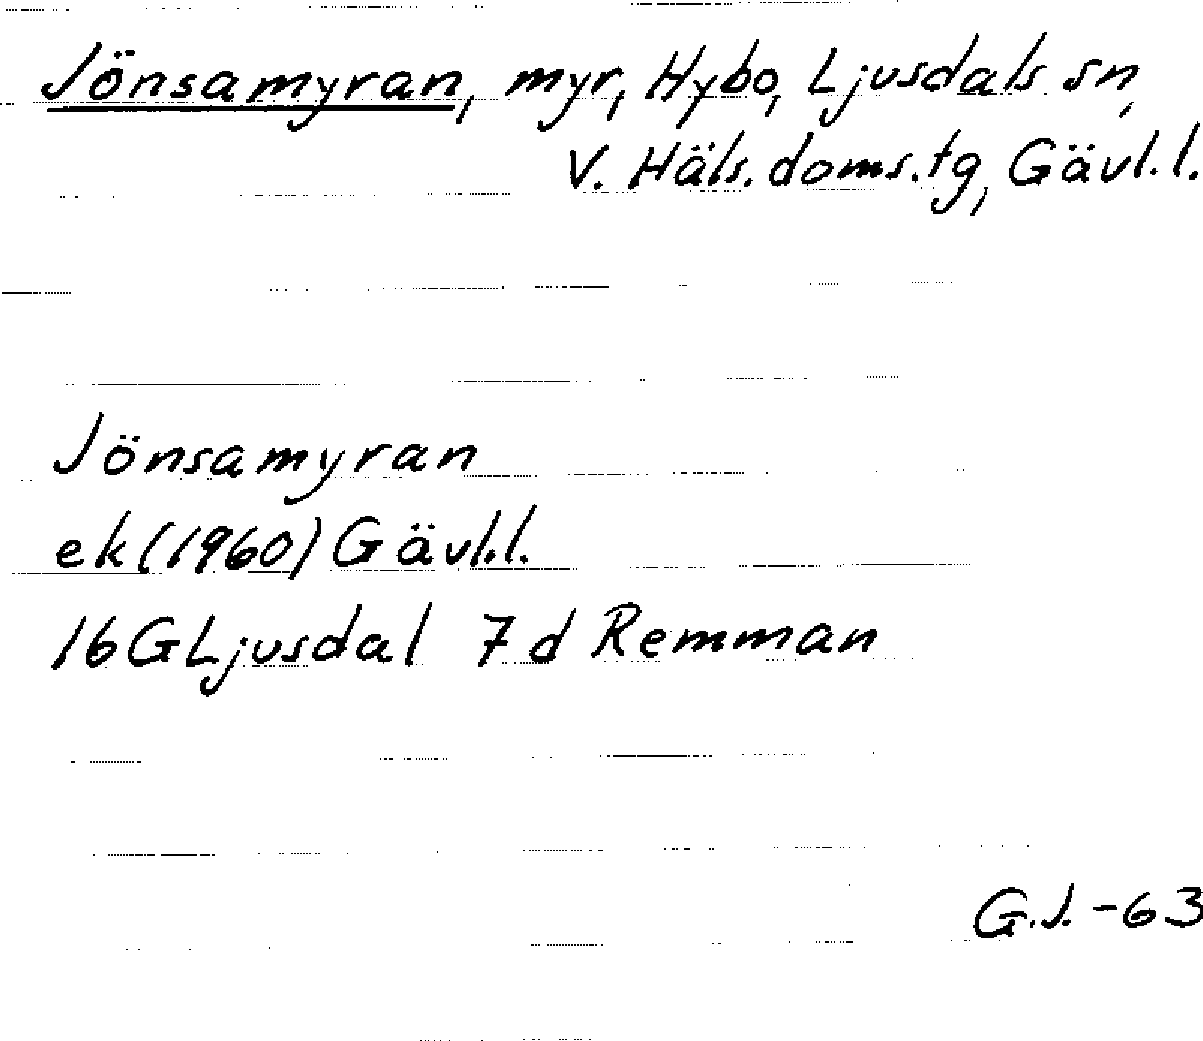 Jönsamyran, myr, Hybo, Ljusdals sn,
V. Häls. doms. tg, Gävl. l.
Jönsamyran
ek (1960) Gävl. l.
16 G Ljusdal 7 d Remman
G.J. -63